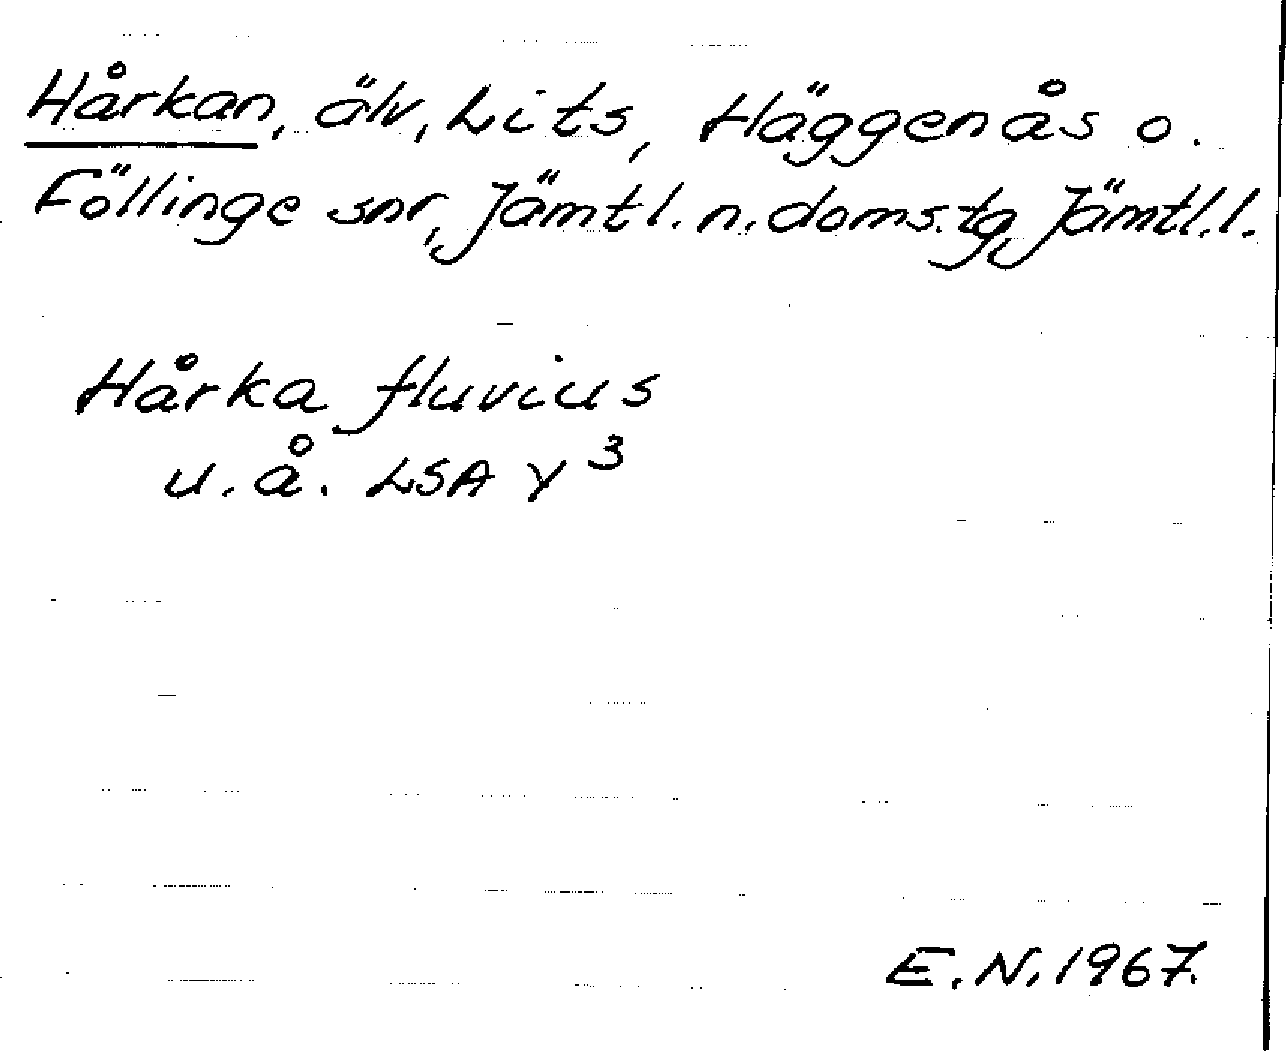 Hårkan, älv, Lits, Häggenås o.
Föllinge snr, Jämtl. n. doms.tg, Jämtl.l.
Hårka fluvius
u.å. LSA Y³
E.N. 1967.